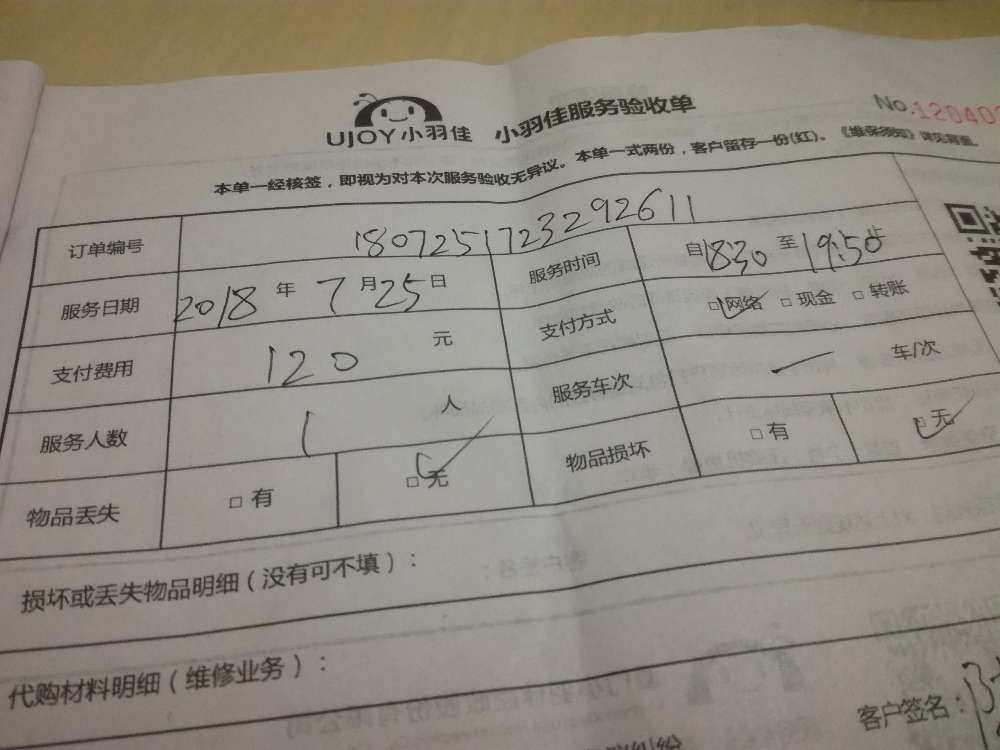 UJOY小羽佳 小羽佳服务验收单 No.12040
本单一经核签，即视为对本次服务验收无异议。本单一式两份，客户留存一份(红)。《维保须知》详见背面。
订单编号 180725172329261１
服务日期 2018 年 7 月 25 日 服务时间 自 18:30 至 19:50 止
支付费用 120 元 支付方式 □网络 □现金 □转账
服务人数 1 人 服务车次 一 车/次
物品丢失 □有 □无 物品损坏 □有 □无
损坏或丢失物品明细（没有可不填）：
代购材料明细（维修业务）：
客户签名：